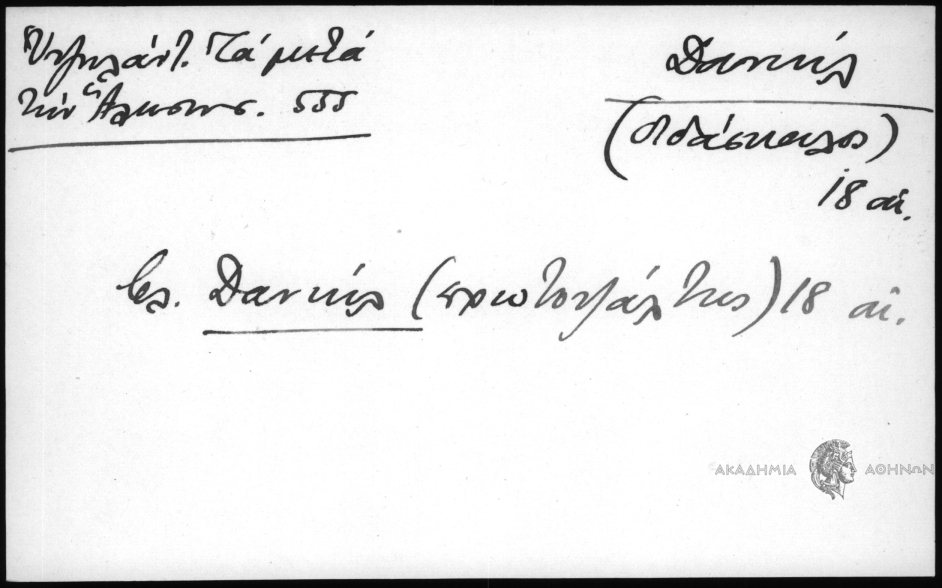 Ὑψηλάντ. Τά μετά
τήν Ἅλωσιν σ. 555
Δανιήλ
(διδάσκαλος)
18 αἰ.
βλ. Δανιήλ (πρωτοψάλτης) 18 αἰ.
ΑΚΑΔΗΜΙΑ ΑΘΗΝΩΝ